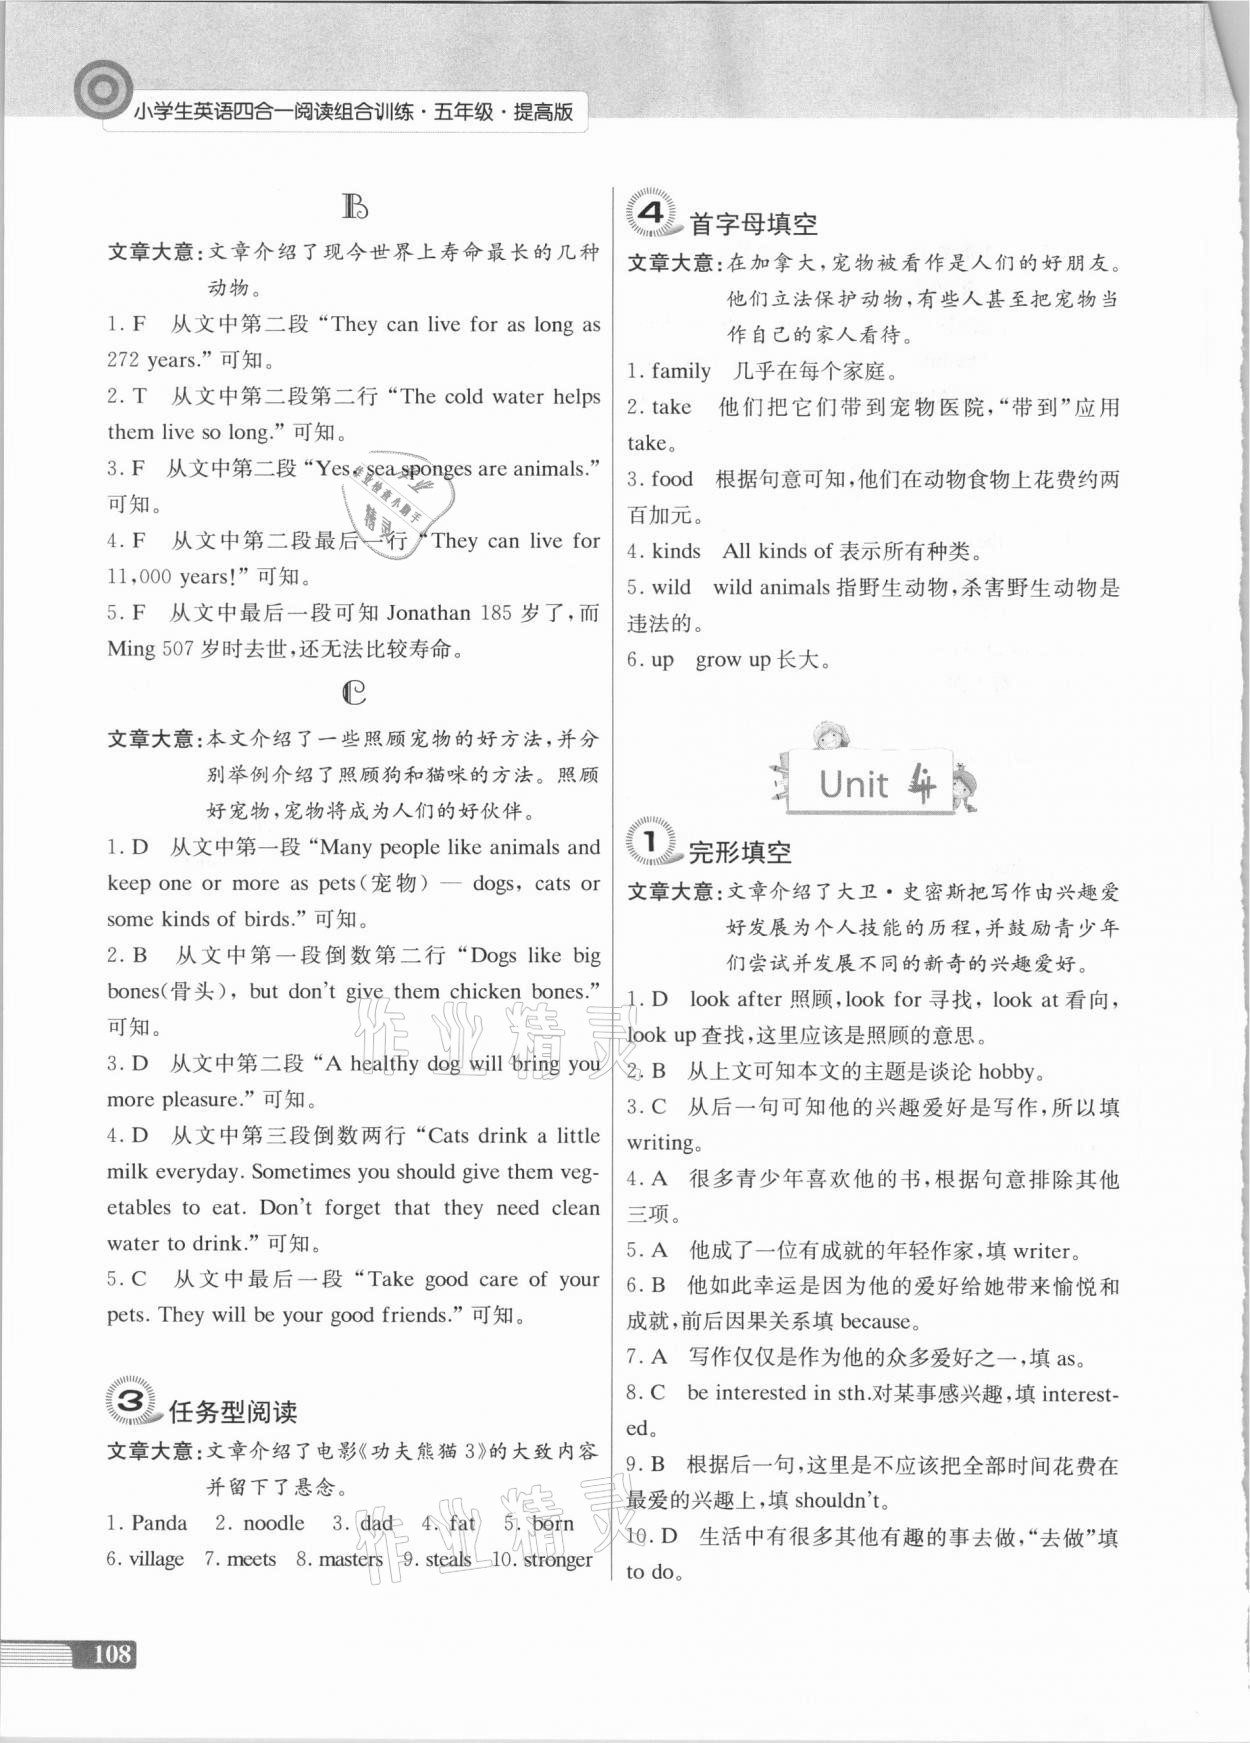 小学生英语四合一阅读组合训练·五年级·提高版
B
文章大意:文章介绍了现今世界上寿命最长的几种
动物。
1. F 从文中第二段“They can live for as long as
272 years.”可知。
2. T 从文中第二段第二行“The cold water helps
them live so long.”可知。
3. F 从文中第二段“Yes, sea sponges are animals.”
可知。
4. F 从文中第二段最后一行“They can live for
11,000 years!”可知。
5. F 从文中最后一段可知 Jonathan 185 岁了,而
Ming 507 岁时去世,还无法比较寿命。
C
文章大意:本文介绍了一些照顾宠物的好方法,并分
别举例介绍了照顾狗和猫咪的方法。照顾
好宠物,宠物将成为人们的好伙伴。
1. D 从文中第一段“Many people like animals and
keep one or more as pets(宠物) — dogs, cats or
some kinds of birds.”可知。
2. B 从文中第一段倒数第二行“Dogs like big
bones(骨头), but don't give them chicken bones.”
可知。
3. D 从文中第二段“A healthy dog will bring you
more pleasure.”可知。
4. D 从文中第三段倒数两行“Cats drink a little
milk everyday. Sometimes you should give them veg-
etables to eat. Don't forget that they need clean
water to drink.”可知。
5. C 从文中最后一段“Take good care of your
pets. They will be your good friends.”可知。
3 任务型阅读
文章大意:文章介绍了电影《功夫熊猫 3》的大致内容
并留下了悬念。
1. Panda 2. noodle 3. dad 4. fat 5. born
6. village 7. meets 8. masters 9. steals 10. stronger
4 首字母填空
文章大意:在加拿大,宠物被看作是人们的好朋友。
他们立法保护动物,有些人甚至把宠物当
作自己的家人看待。
1. family 几乎在每个家庭。
2. take 他们把它们带到宠物医院,“带到”应用
take。
3. food 根据句意可知,他们在动物食物上花费约两
百加元。
4. kinds All kinds of 表示所有种类。
5. wild wild animals 指野生动物,杀害野生动物是
违法的。
6. up grow up 长大。
Unit 4
1 完形填空
文章大意:文章介绍了大卫·史密斯把写作由兴趣爱
好发展为个人技能的历程,并鼓励青少年
们尝试并发展不同的新奇的兴趣爱好。
1. D look after 照顾,look for 寻找, look at 看向,
look up 查找,这里应该是照顾的意思。
2. B 从上文可知本文的主题是谈论 hobby。
3. C 从后一句可知他的兴趣爱好是写作,所以填
writing。
4. A 很多青少年喜欢他的书,根据句意排除其他
三项。
5. A 他成了一位有成就的年轻作家,填 writer。
6. B 他如此幸运是因为他的爱好给她带来愉悦和
成就,前后因果关系填 because。
7. A 写作仅仅是作为他的众多爱好之一,填 as。
8. C be interested in sth.对某事感兴趣,填 interest-
ed。
9. B 根据后一句,这里是不应该把全部时间花费在
最爱的兴趣上,填 shouldn't。
10. D 生活中有很多其他有趣的事去做,“去做”填
to do。
108
作业精灵
作业精灵